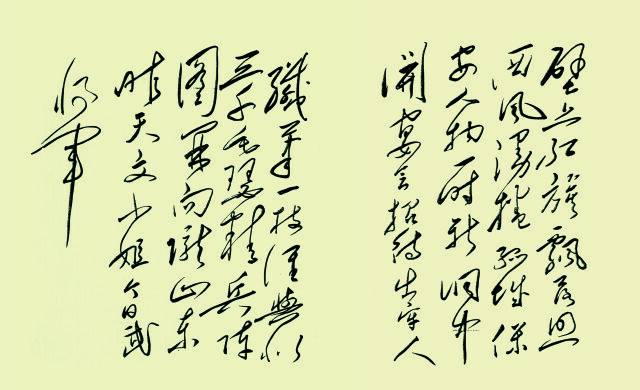 壁上红旗飄落照
西风漫捲孤城保
安人物一时新洞中
開宴会招待出牢人
纖筆一枝谁與似
三千毛瑟精兵陣
图開向隴山东
昨天文小姐今日武
将軍